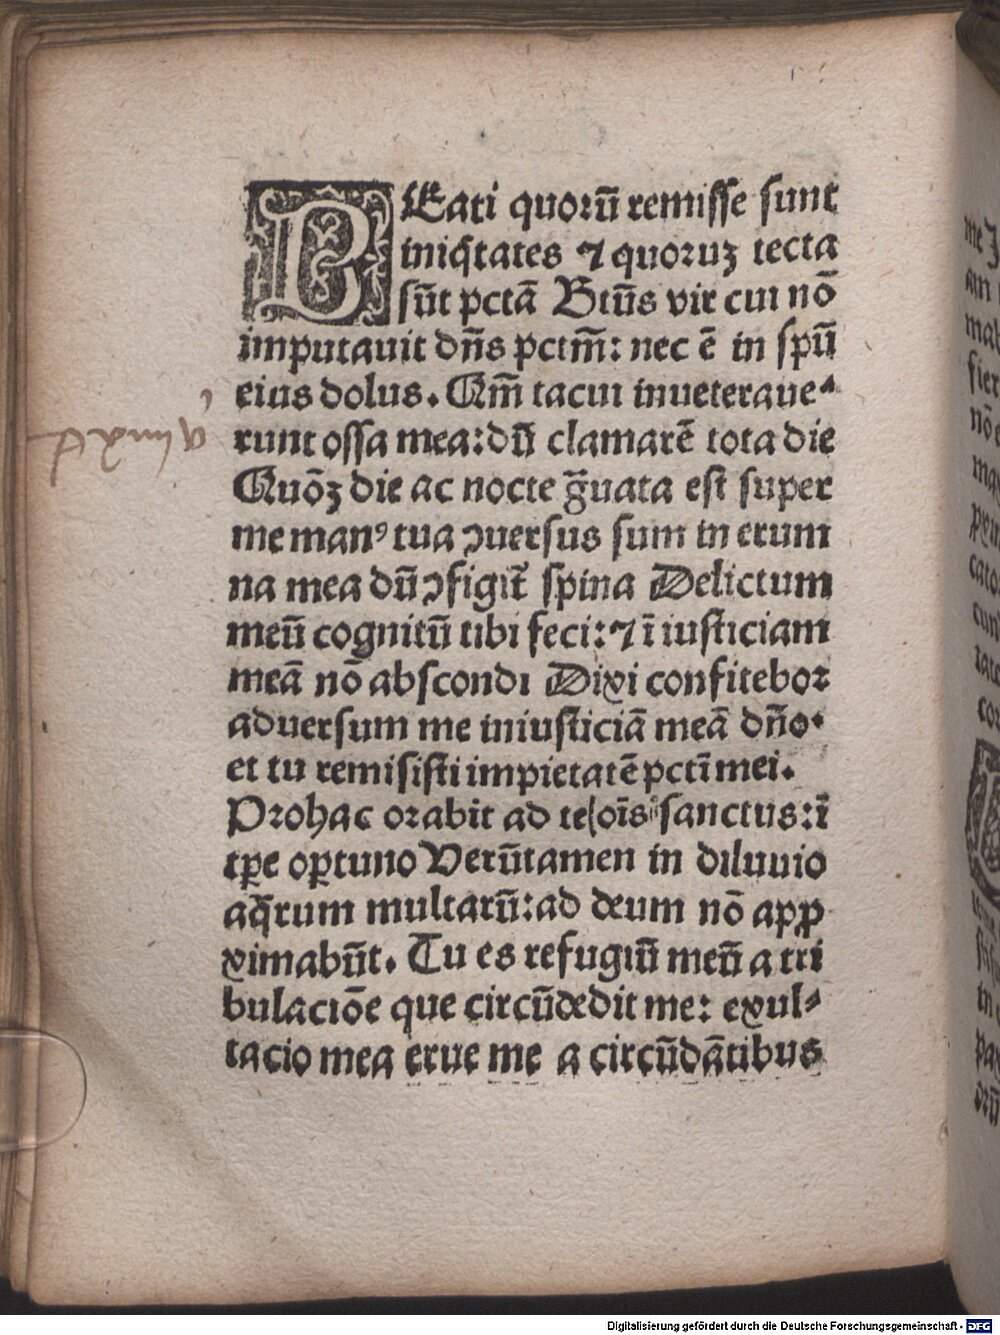 BEati quorū remisse sunt
iniq̄tates ⁊ quoruꝫ tecta
sūt pctā Btūs vir cui nō
imputauit dn̄s pctm̄: nec ē in spū
eius dolus. Qm̄ tacui inueteraue⸗
runt ossa mea: dū clamarē tota die
Quōꝫ die ac nocte ḡuata est super
me manꝰ tua ↄuersus sum in erum
na mea dū ↄfigit̄ spina Delictum
meū cognitū tibi feci: ⁊ ī iusticiam
meā nō abscondi Dixi confitebor
aduersum me iniusticiā meā dn̄o.
et tu remisisti impietatē pctī mei.
Prohac orabit ad te oīs sanctus: ī
tꝑe oꝑtuno Verūtamen in diluuio
aq̄rum multarū: ad deum nō apꝓ
ximabūt. Tu es refugiū meū a tri
bulaciōe que circūdedit me: exul⸗
tacio mea erue me a circūdātibus
Digitalisierung gefördert durch die Deutsche Forschungsgemeinschaft - DFG